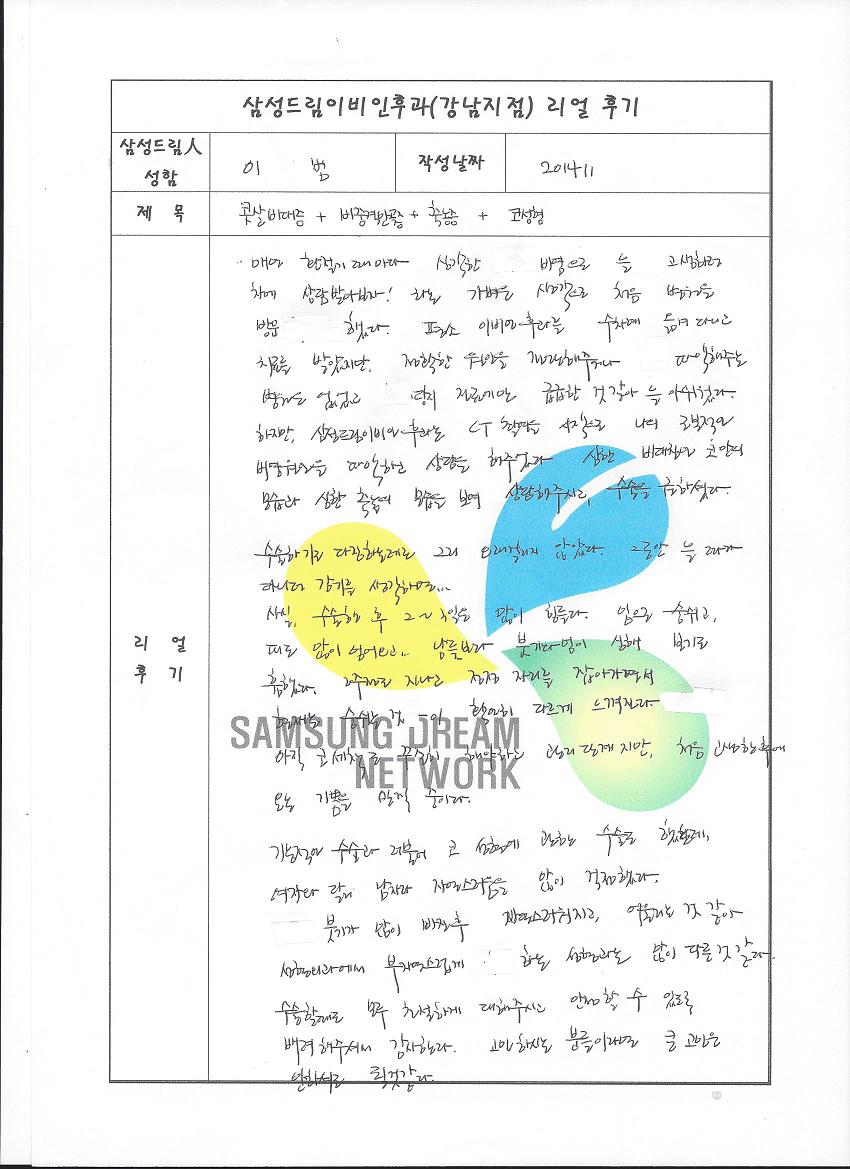 삼성드림이비인후과(강남지점) 리얼 후기
삼성드림人 성함
이 범
작성날짜
201411
제 목
콧살비대증 + 비중격만곡증 + 축농증 + 코성형
리 얼 후 기
매년 환절기 때마다 심각한 비염으로 늘 고생하던
차에 상담받아보자! 하는 가벼운 생각으로 처음 병원을
방문 했었다. 평소 이비인후과를 수차례 들려 다니고
치료를 받았지만, 정확한 원인을 파악해주는
병원은 없었고 단지 치료에만 급급한 것 같아 늘 아쉬웠다.
하지만, 삼성드림이비인후과는 CT 촬영을 시작으로 나의 근본적인
비염원인을 파악하고 상담을 해주었다. 심한 비대칭인 코안의
모습과 심한 축농의 모습을 보여 상담해주시고, 수술을 권하셨다.
수술하기로 다짐하는데로 그리 오래걸리지 않았다. 그동안 늘 달고
다니던 감기를 생각하면...
사실, 수술한 후 2~3일은 많이 힘들다. 입으로 숨쉬고,
피도 많이 넘어오고.. 남들보다 붓기다멍이 심해 보기도
흉했다. 2주정도 지나고 점점 자리를 잡아가면서
현재는 숨쉬는 것 이 확연히 다르게 느껴진다.
아직 코세척을 꾸준히 해야하는 관리 단계지만, 처음 고생한후에
오는 기쁨을 만끽 중이다.
기능적인 수술과 더불어 코 성형에 관하는 수술도 했는데,
여자와 달리 남자라 자연스러움을 많이 걱정했다.
붓기가 많이 빠진후 자연스러워지고, 어울리는 것 같아
성형외과에서 부자연스럽게 하는 성형과는 많이 다른것 같다.
수술할때도 모두 친절하게 대해주시고 안정할 수 있도록
배려해주셔서 감사하다. 고민하시는 분들이라면 큰 고민은
안하셔도 될것같다.
SAMSUNG DREAM
NETWORK